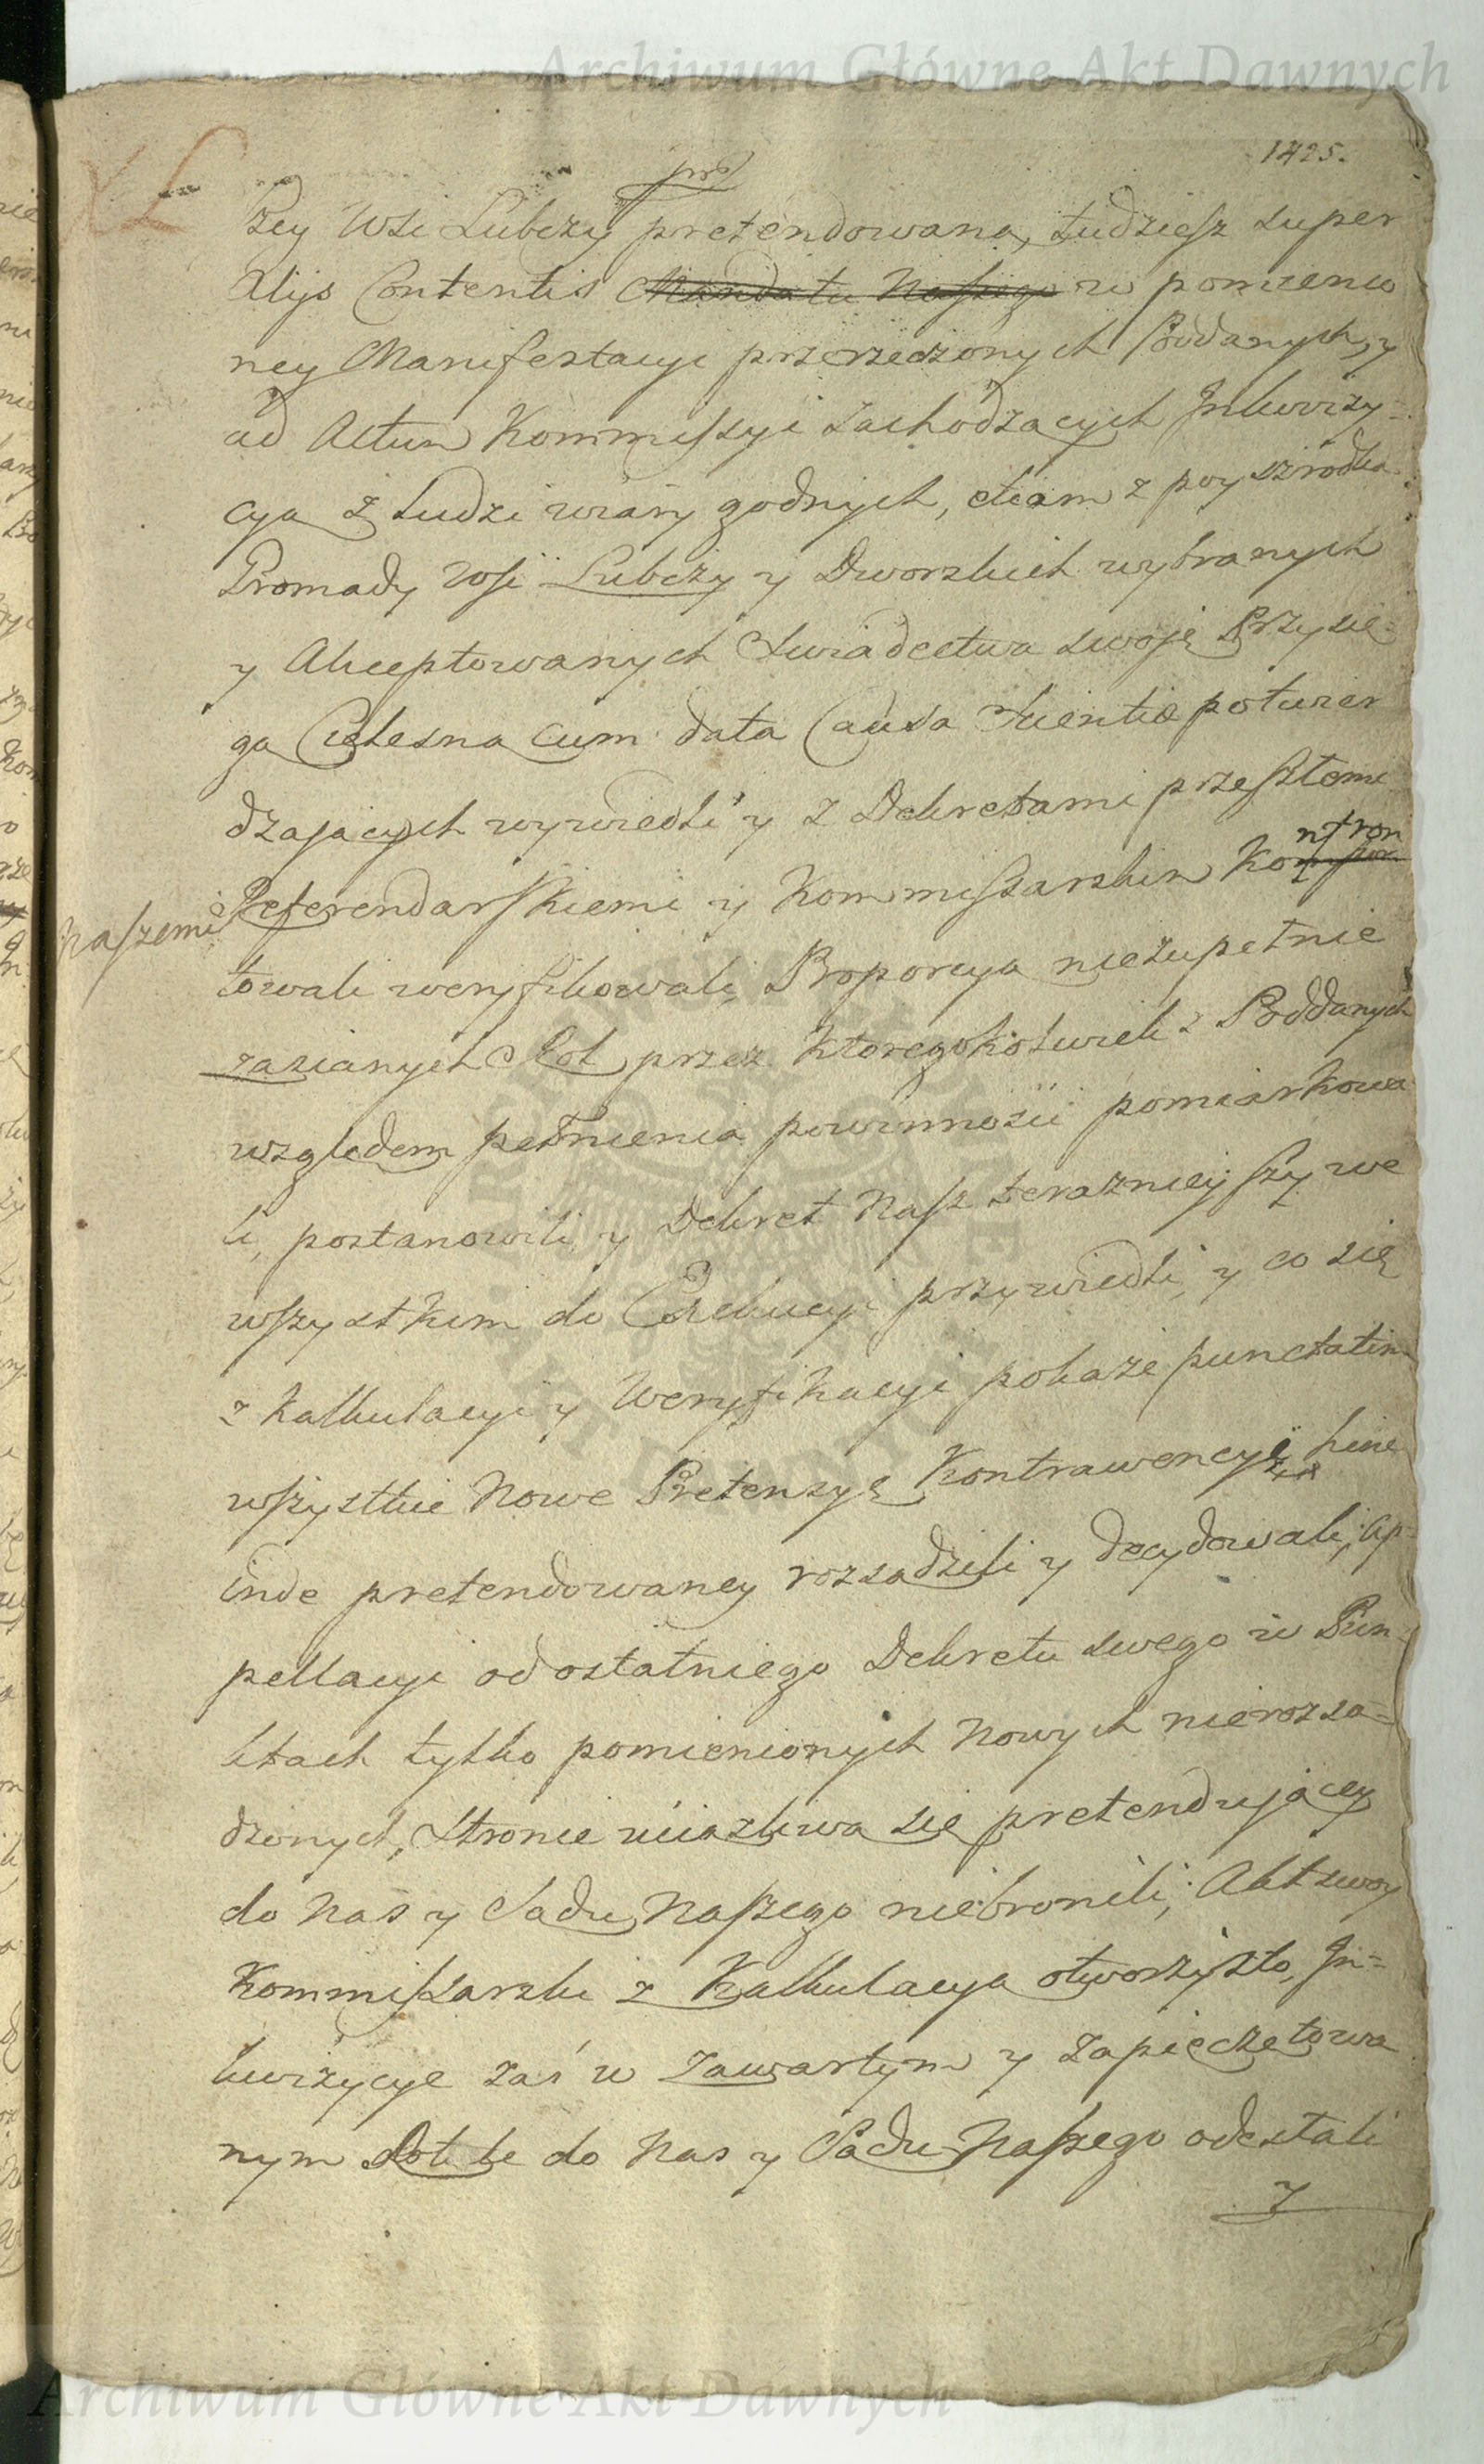 Archiwum Główne Akt Dawnych
1425.
prze
żey Wsi Lubczy pretendowaną, tudziesz super
Alijs Contentis Mandatu Naszego w pomienio
ney Manifestacyi przerzeczonych Poddanych, y
ad Actum Kommissyi zachodzących Inkwizy-
cyą z Ludzi wiary godnych, etiam z poyszrodka
Gromady Wsi Lubczy y Dworskich wybranych
y Akceptowanych Swiadectwa swoje Przysię-
gą Cielesną cum data Causa Scientiæ potwier
dzaiących wywiedli y z Dekretami przeszłemi
Naszemi Referendarskiemi y Kommissarskim Kontron
towali weryfikowali, Proporcyą niezupełnie
zasianych Rol przez ktoregokolwiek z Poddanych
względem pełnienia powinności pomiarkowa
li, postanowili, y Dekret Nasz teraznieyszy we
wszystkim do Exekucyi przywiedli, y co się
z Kalkulacyi y Weryfikacyi pokaże punctatim
wszystkie Nowe Pretensye, Kontrawencye hinc
inde pretendowaney rozsądzili y decydowali, Ap-
pellacyi od ostatniego Dekretu swego w Pun-
ktach tylko pomienionych Nowych nierozsą-
dzonych, Stronie uciążliwą się pretenduiącey
do Nas y Sądu Naszego niebronili, Akt swoy
Kommissarski z Kalkulacyą otworzysto, In-
kwizycye zaś w zawartym y zapieczętowa
nym Rotule do Nas y Sądu Naszego odesłali
y
Archiwum Główne Akt Dawnych